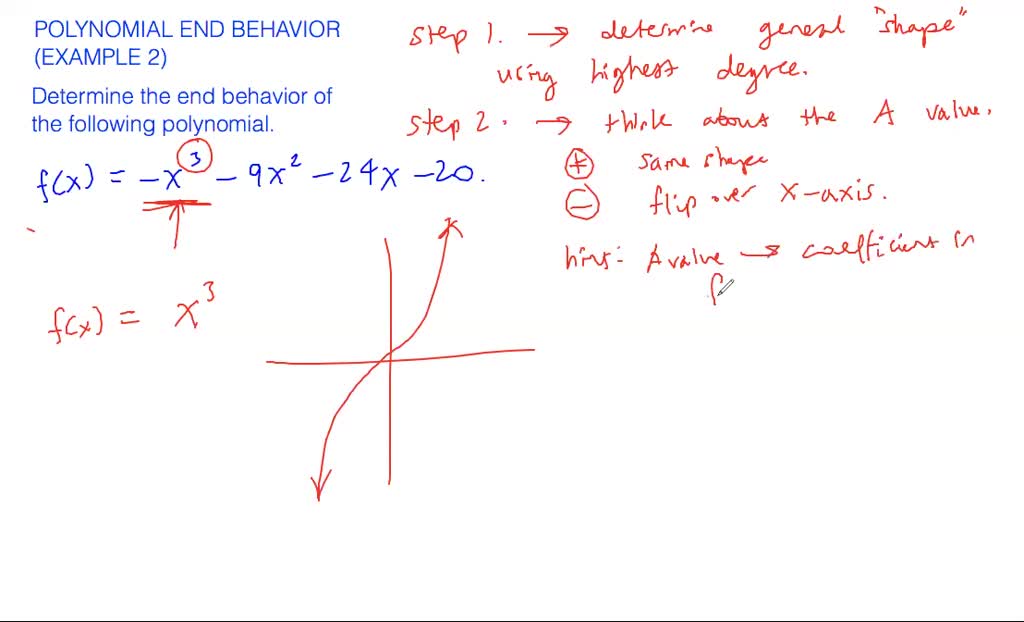 POLYNOMIAL END BEHAVIOR
(EXAMPLE 2)
Determine the end behavior of
the following polynomial.
f(x) = -x³ - 9x² - 24x - 20.
f(x) = x³
step 1. → determine general "shape"
using highest degree.
step 2. → think about the A value.
+ same shape
- flip over x-axis.
hint: A value → coefficient in
f